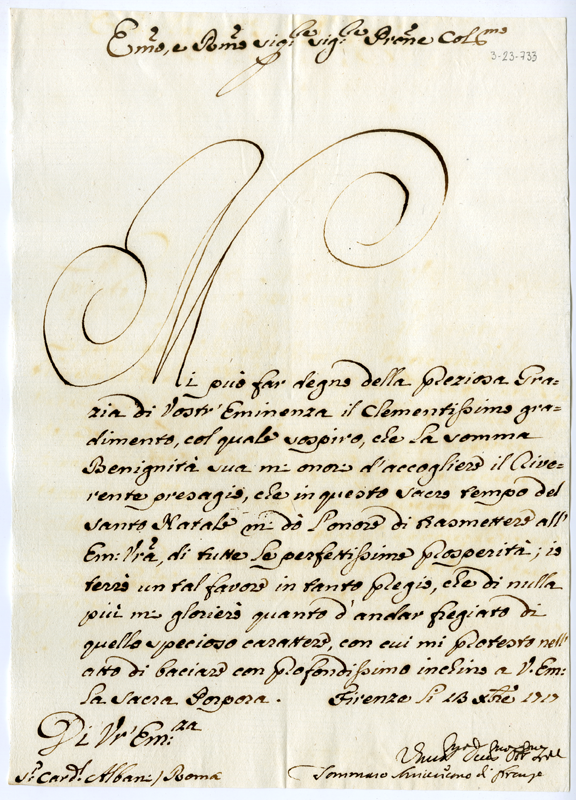 Em̃o, e Rm̃o Sig:re Sig:re Prõne Col:mo
3-23-733
Mi può far degno della preziosa Gra=
zia di Vostr' Eminenza il Clementissimo gra=
dimento, col quale sospiro, che la somma
Benignità sua m'onori d'accogliere il Rive=
rente presagio, che in questo sacro tempo del
Santo Natale mi dò l'onore di trasmettere all'
Em: Vr̃a, di tutte le perfettissime prosperità; io
terrò un tal favore in tanto pregio, che di nulla
più mi glorierò quanto d'andar fregiato di
quello specioso carattere, con cui mi protesto nell'
atto di baciare con profondissimo inchino a V. Em:
la Sacra Porpora. Firenze li 13 Xbre 1717
Di Vr̃' Em:za
Sr. Card: Albani / Roma
Tommaso di Firenze